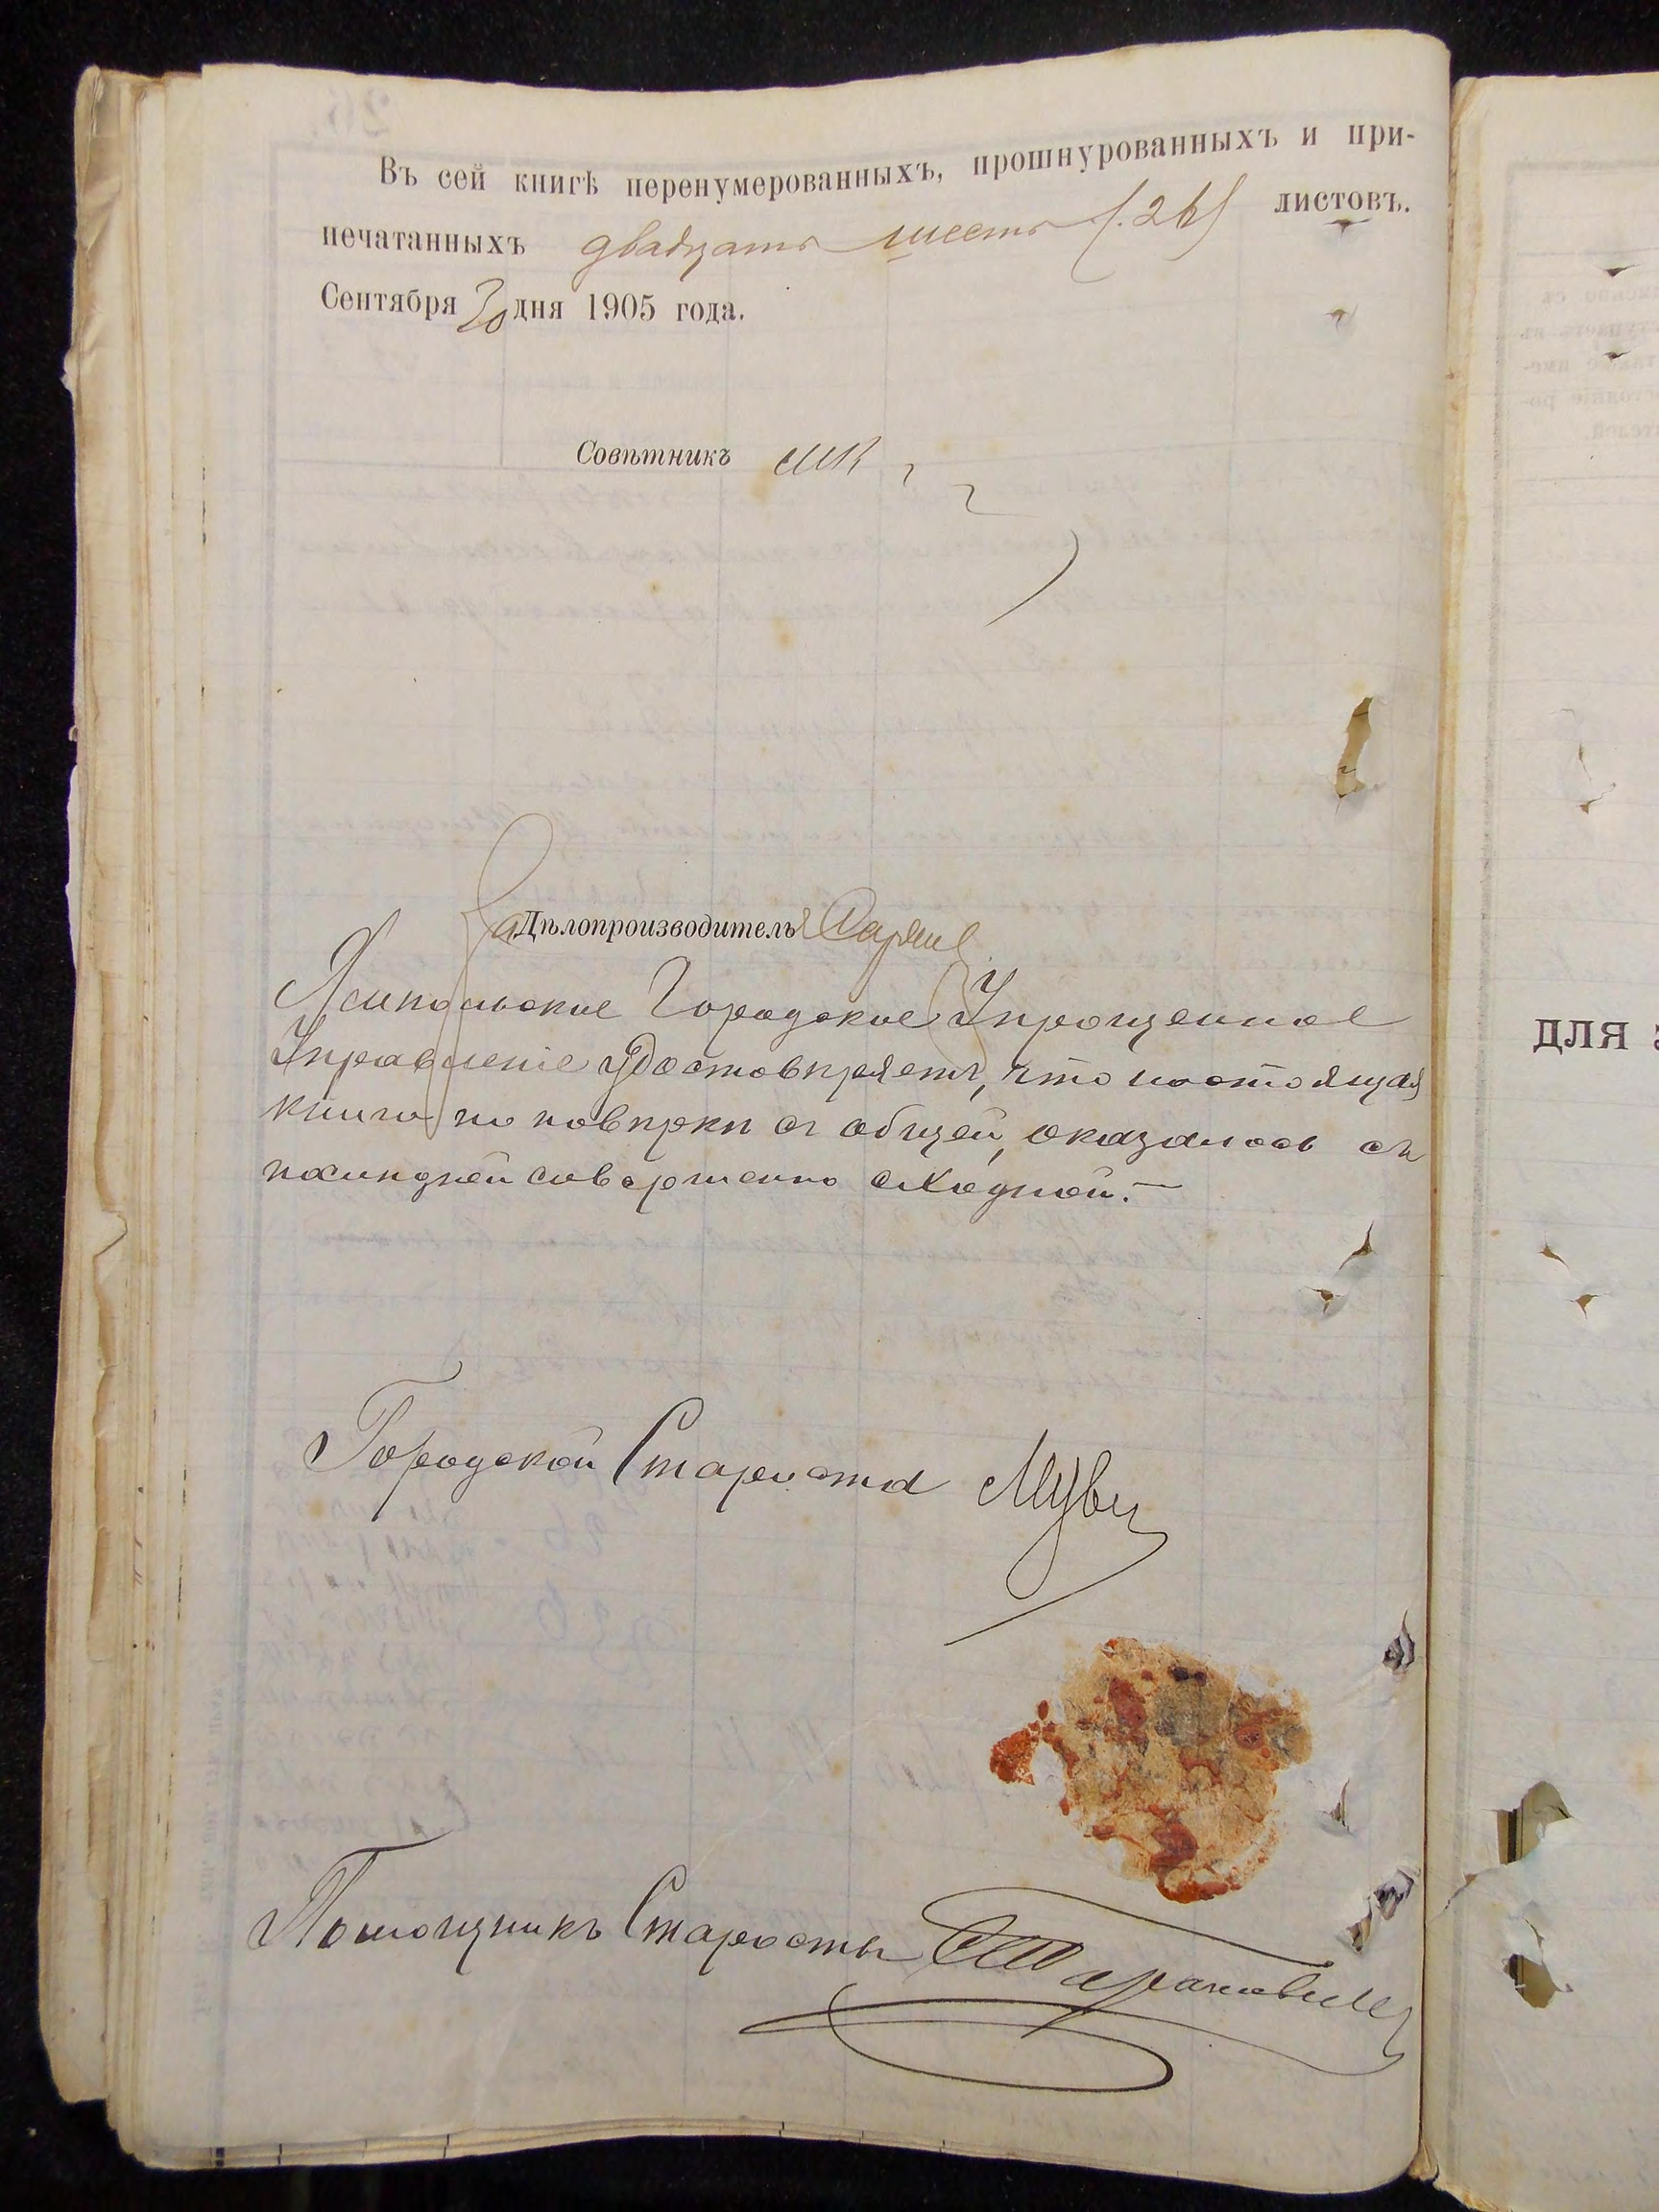 Въ сей книгѣ перенумерованныхъ, прошнурованныхъ и при-
печатанныхъ двадцать шесть (26) листовъ.
Сентября 30 дня 1905 года.
Совѣтникъ
За Дѣлопроизводителя
Ямпольское Городское Упрощенное
Управленіе удостовѣряетъ, что настоящая
книга по повѣрки съ общей, оказалась съ
послѣдней совершенно сходной. —
Городской Староста
Помощникъ Старосты
ДЛЯ